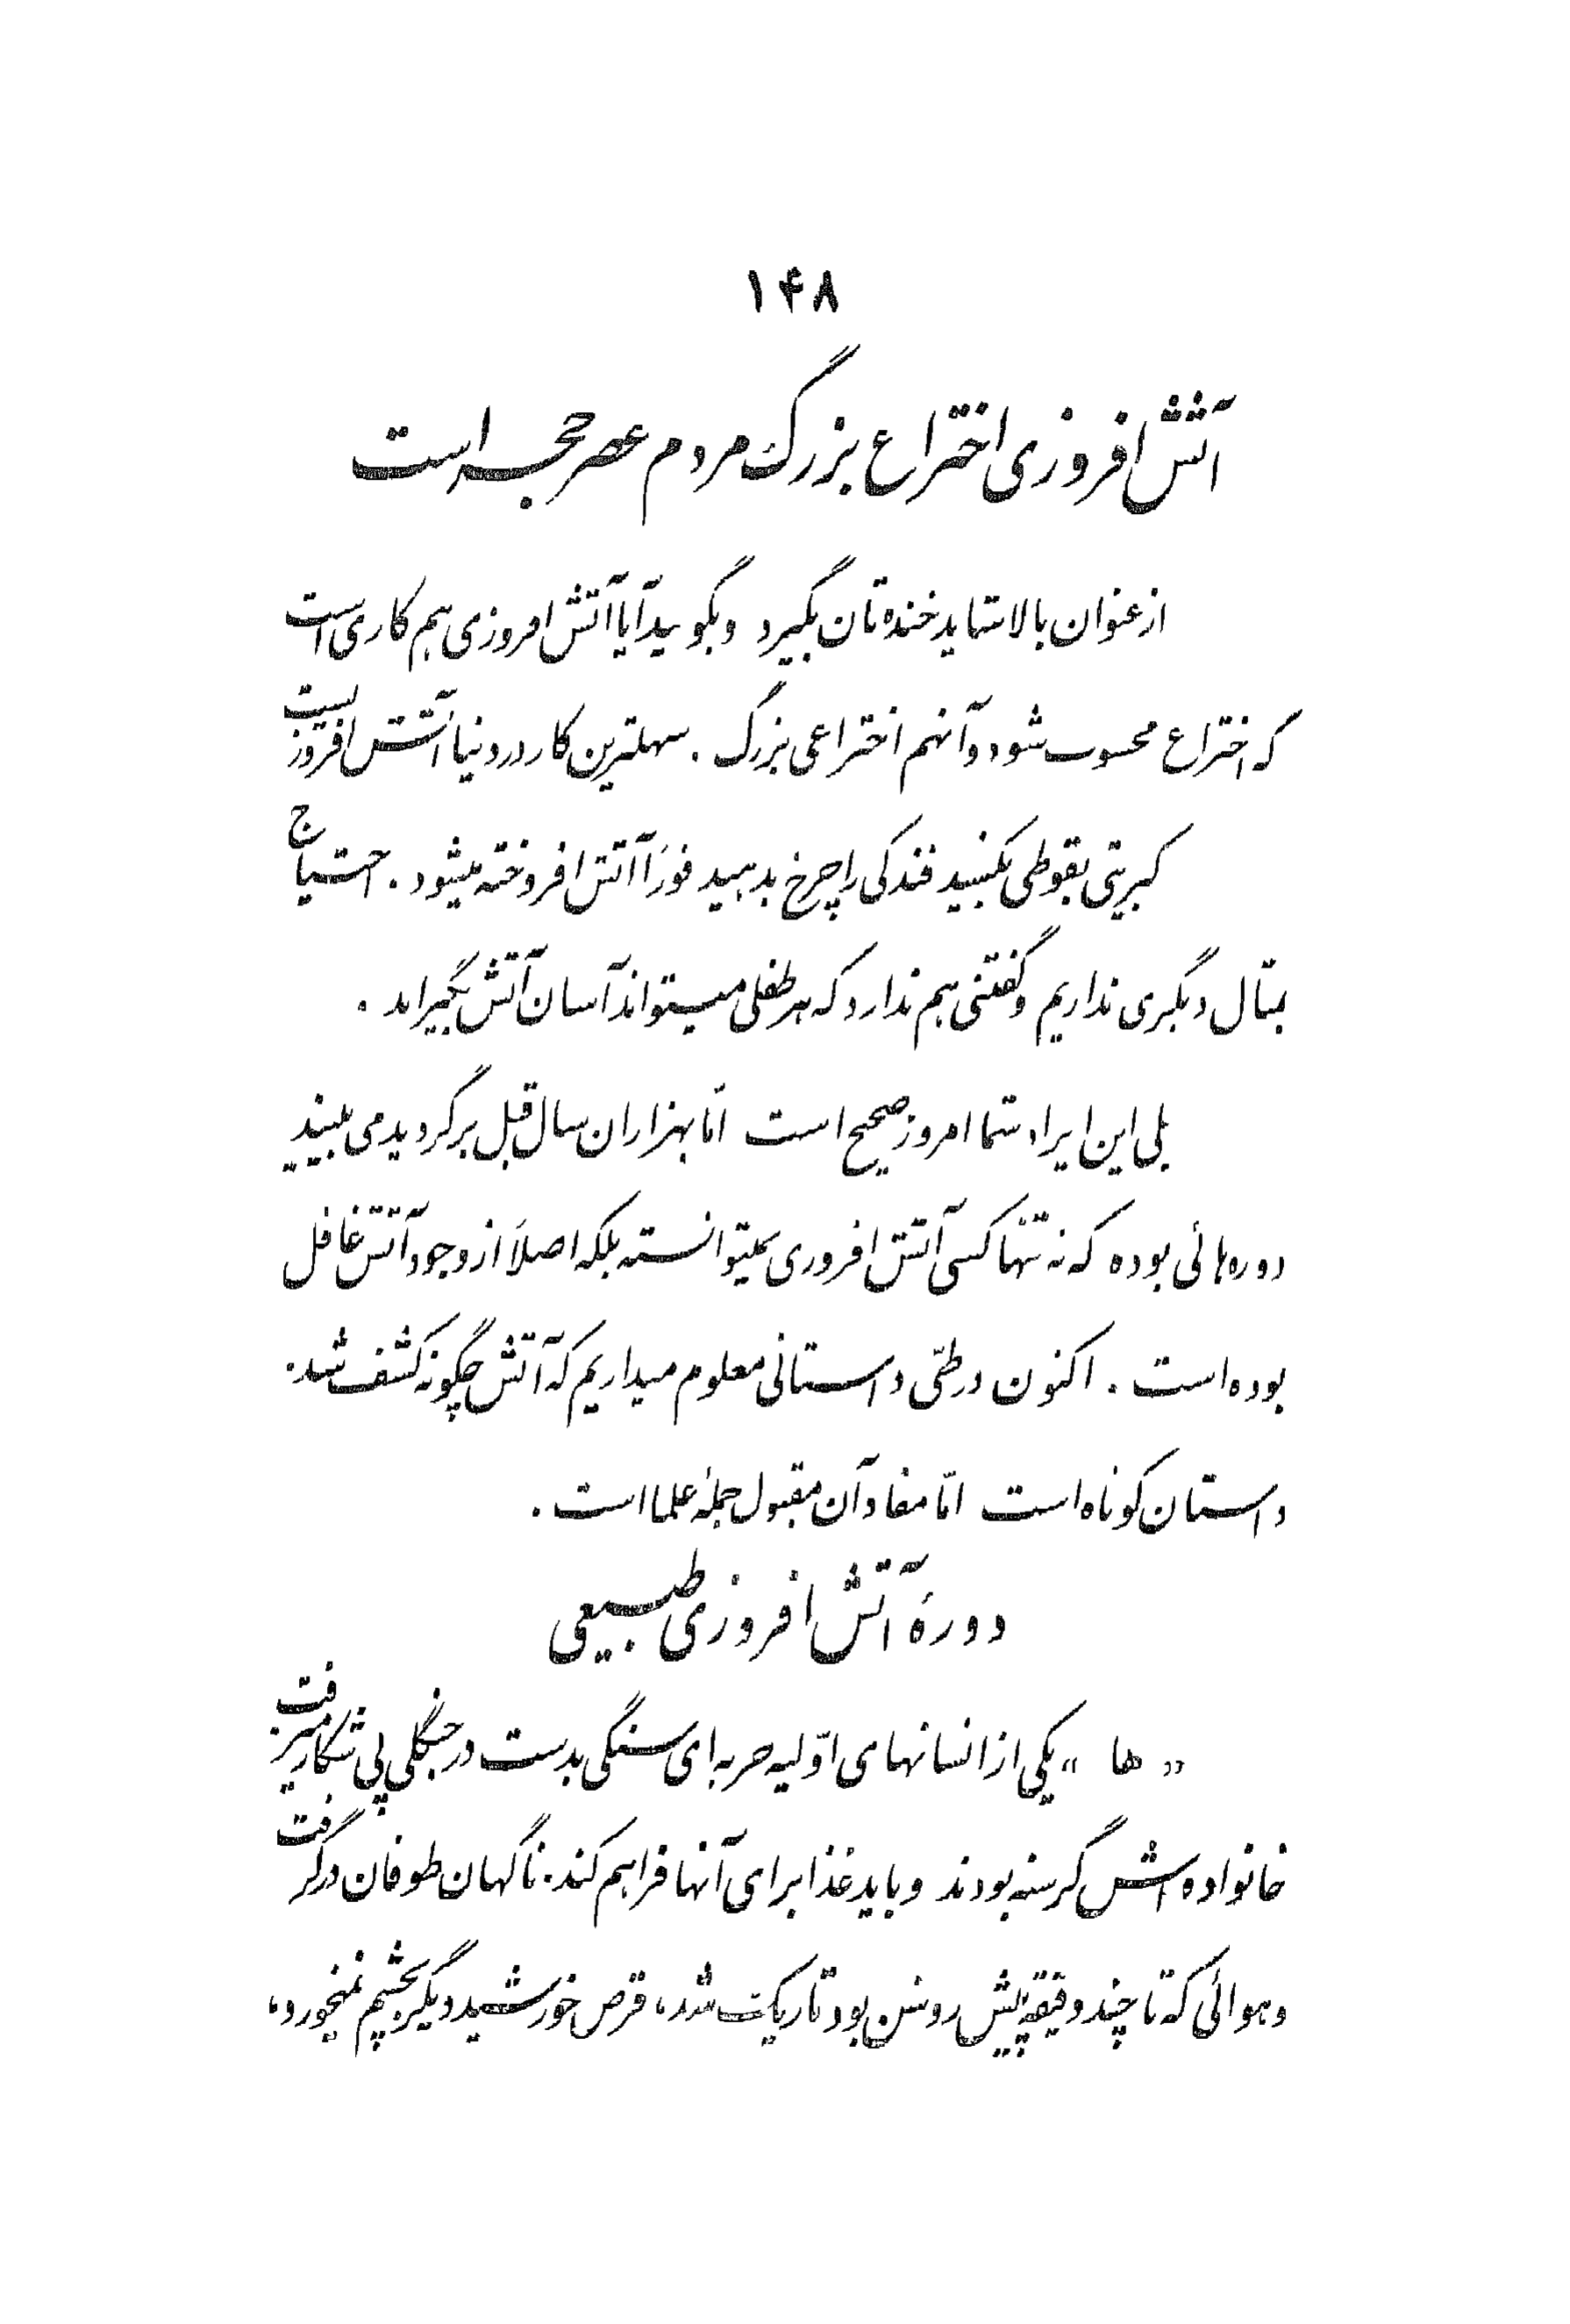 ۱۴۸
آتش افروزی اختراع بزرگ مردم عصر حجر است
از عنوان بالا شاید خنده تان بگیرد و بگویید آیا آتش افروزی هم کاری است
که اختراع محسوب شود و آنهم اختراعی بزرگ . سهلترین کار در دنیا آتش افروزیست
کبریتی بقوطی بکشید فندکی را چرخ بدهید فوراً آتش افروخته میشود . احتیاج
بمثال دیگری نداریم و گفتنی هم ندارد که هر طفلی میتواند آسان آتش بگیراند .
بلی این ایراد شما امروز صحیح است امّا بهزاران سال قبل برگردید می بینید
دوره هائی بوده که نه تنها کسی آتش افروزی نمیتوانسته بلکه اصلاً از وجود آتش غافل
بوده است . اکنون در طیّ داستانی معلوم میداریم که آتش چگونه کشف شد .
داستان کوتاه است امّا مفاد آن مقبول جملۀ علما است .
دورۀ آتش افروزی طبیعی
« ها » یکی از انسانهای اوّلیه حربه ای سنگی بدست در جنگلی پی شکار میرفت
خانواده اش گرسنه بودند و باید غذا برای آنها فراهم کند . ناگهان طوفان درگرفت
و هوائی که تا چند دقیقه پیش روشن بود تاریک شد، قرص خورشید دیگر بچشم نمیخورد،